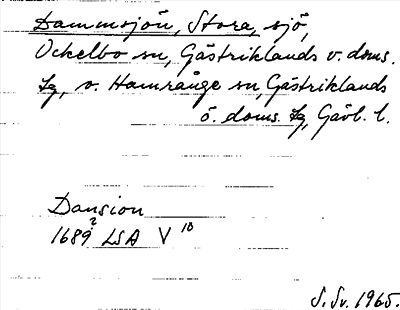 Dammsjön, Stora, sjö,
Ockelbo sn, Gästriklands v. doms.
lg, o. Hamrånge sn, Gästriklands
ö. doms. lg, Gävl. l.
Dansion
1689? LSA V 10
S. Sv. 1965.